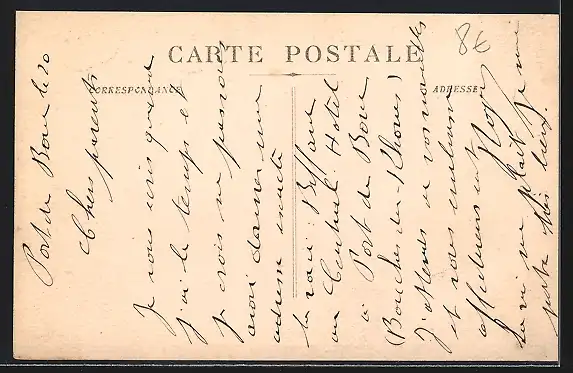 CARTE POSTALE
CORRESPONDANCE
ADRESSE
8€
Port de Bouc le 20
Chers parents
Je vous écris quand
j'ai le temps et
je crois ne pas
avoir donné mon
adresse exacte
la voici : Biffard
au Central Hotel
à Port de Bouc
(Bouches-du-Rhône)
J'attends de vos nouvelles
et vous embrasse
affectueusement
La vie me plait je me
porte très bien.